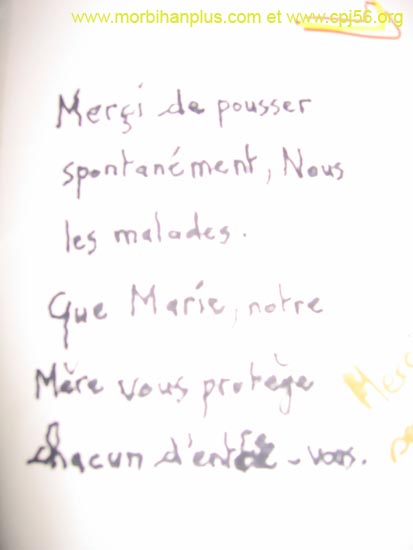 www.morbihanplus.com et www.cpj56.org
Merçi de pousser
spontanément, Nous
les malades.
Que Marie, notre
Mère vous protège
Merci
chacun d'entre-vous.